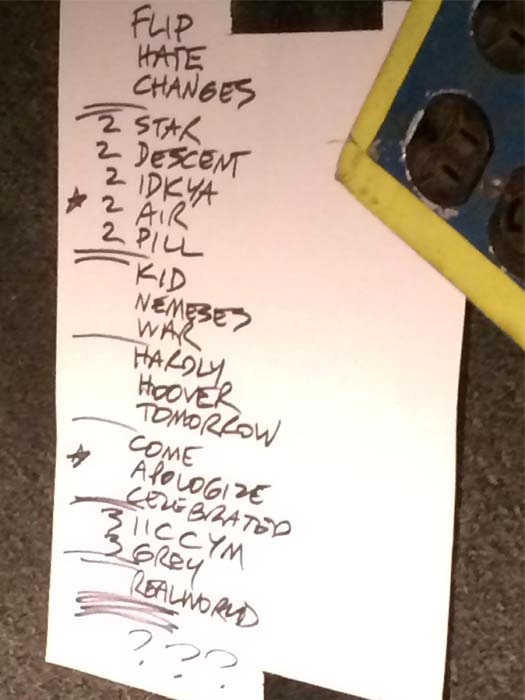 FLIP
HATE
CHANGES
2 STAR
2 DESCENT
2 IDKYA
★ 2 AIR
2 PILL
KID
NEMESES
WAR
HARDLY
HOOVER
TOMORROW
★ COME
APOLOGIZE
CELEBRATED
3 IICCYM
3 GREY
REALWORLD
? ? ?